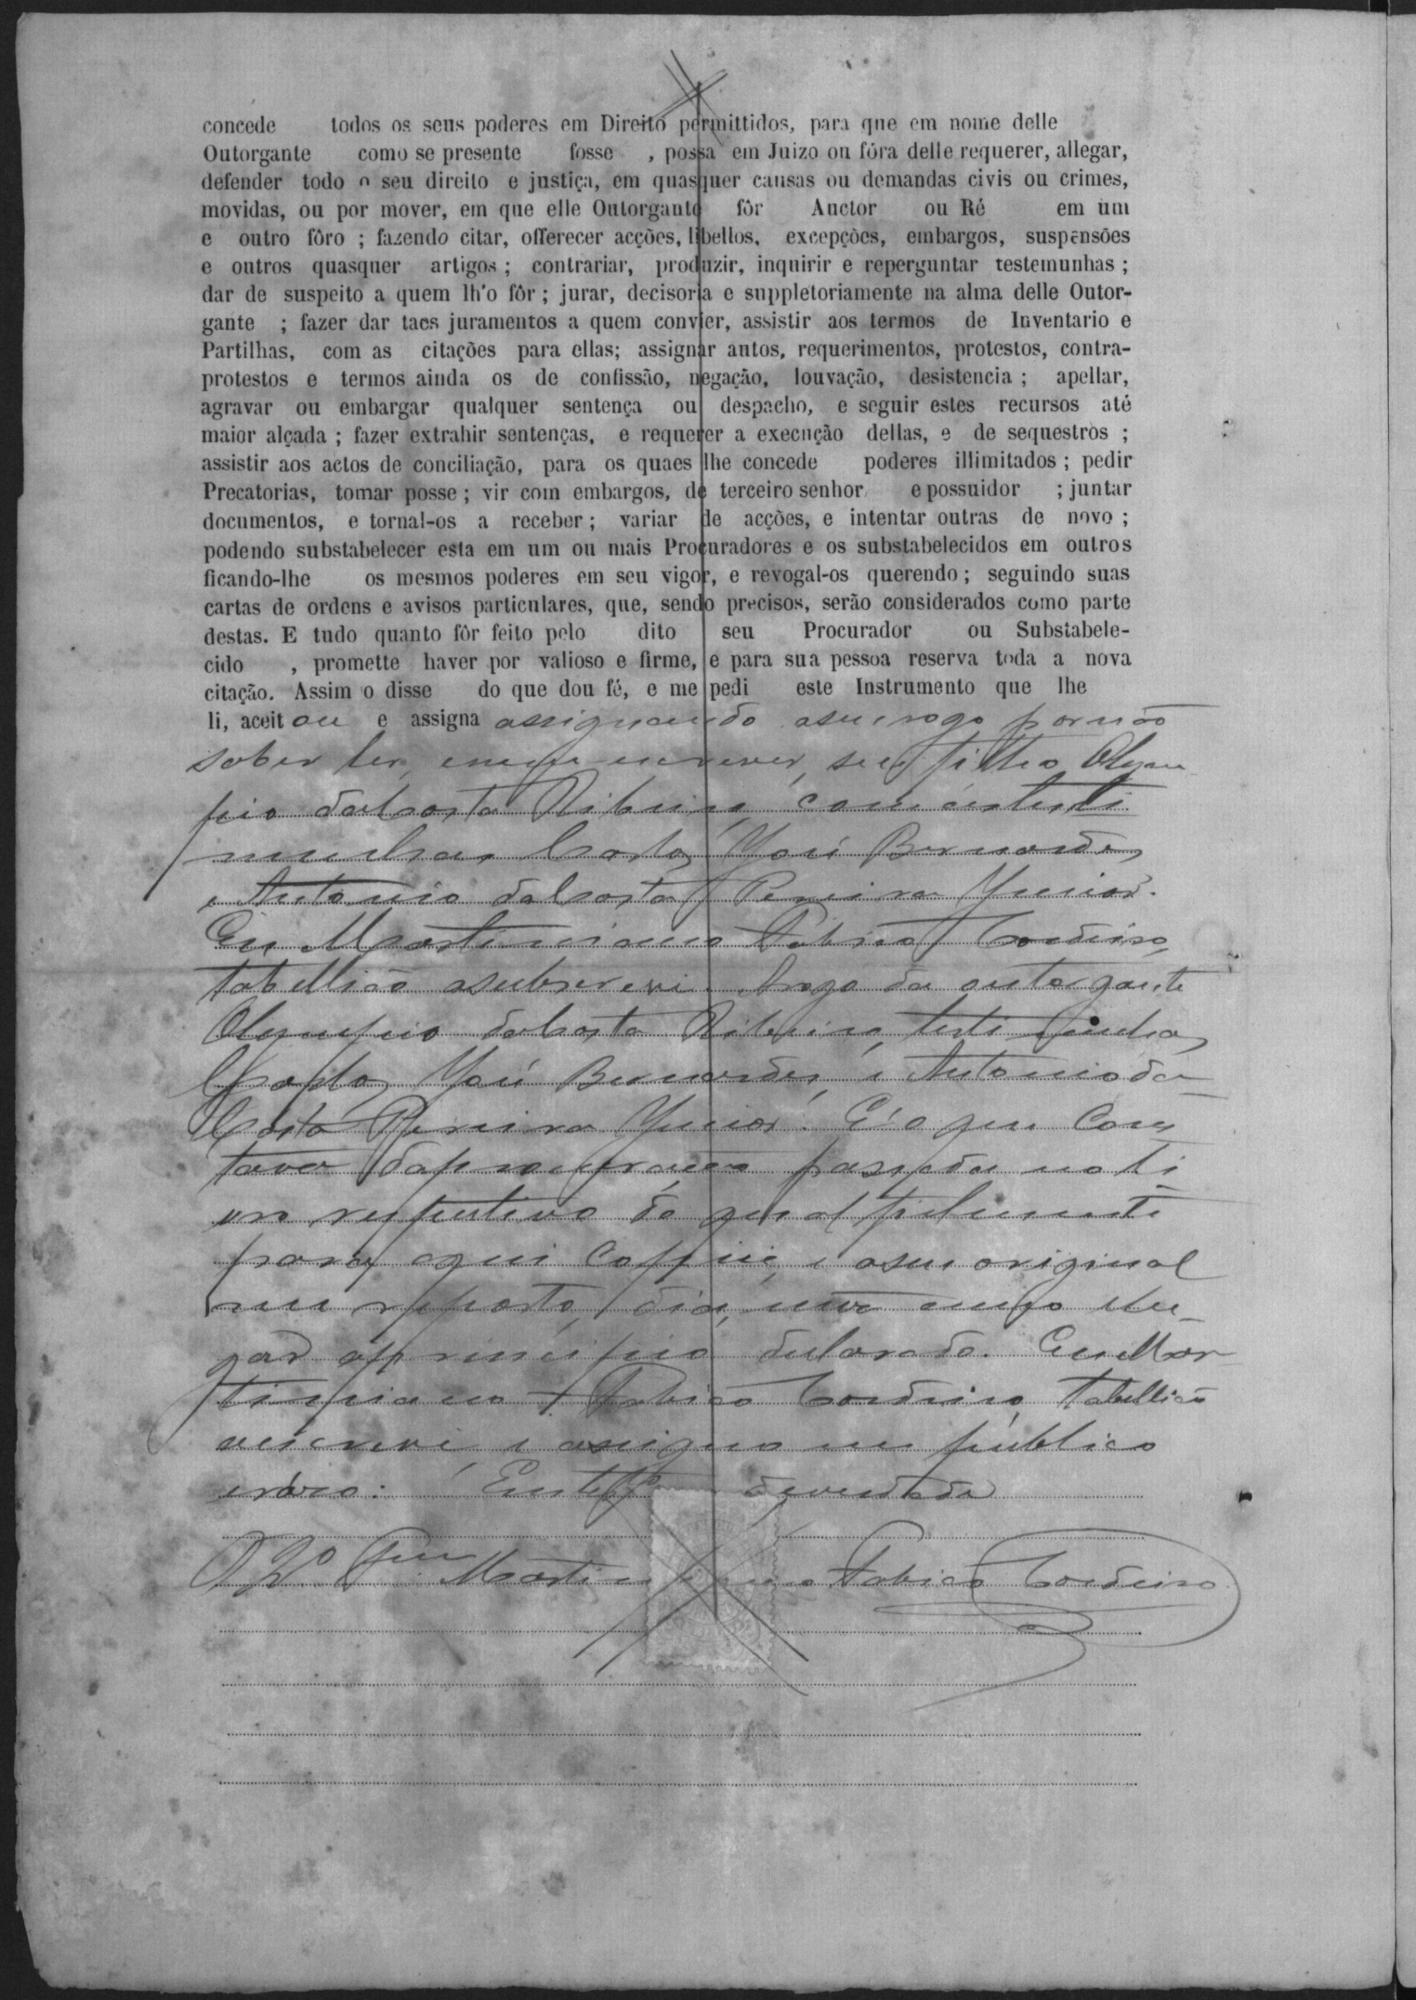 concede todos os seus poderes em Direito permittidos, para que em nome delle
Outorgante como se presente fosse , possa em Juizo ou fóra delle requerer, allegar,
defender todo o seu direito e justiça, em quasquer causas ou demandas civis ou crimes,
movidas, ou por mover, em que elle Outorgante fôr Auctor ou Ré em um
e outro fôro ; fazendo citar, offerecer acções, libellos, excepções, embargos, suspensões
e outros quasquer artigos ; contrariar, produzir, inquirir e reperguntar testemunhas ;
dar de suspeito a quem lh'o fôr ; jurar, decisoria e suppletoriamente na alma delle Outor-
gante ; fazer dar taes juramentos a quem convier, assistir aos termos de Inventario e
Partilhas, com as citações para ellas; assignar autos, requerimentos, protestos, contra-
protestos e termos ainda os de confissão, negação, louvação, desistencia ; apellar,
agravar ou embargar qualquer sentença ou despacho, e seguir estes recursos até
maior alçada ; fazer extrahir sentenças, e requerer a execução dellas, e de sequestros ;
assistir aos actos de conciliação, para os quaes lhe concede poderes illimitados ; pedir
Precatorias, tomar posse ; vir com embargos, de terceiro senhor e possuidor ; juntar
documentos, e tornal-os a receber ; variar de acções, e intentar outras de novo ;
podendo substabelecer esta em um ou mais Procuradores e os substabelecidos em outros
ficando-lhe os mesmos poderes em seu vigor, e revogal-os querendo ; seguindo suas
cartas de ordens e avisos particulares, que, sendo precisos, serão considerados como parte
destas. E tudo quanto fôr feito pelo dito seu Procurador ou Substabele-
cido , promette haver por valioso e firme, e para sua pessoa reserva toda a nova
citação. Assim o disse do que dou fé, e me pedi este Instrumento que lhe
li, aceitou e assigna assignando aseu rogo por não
saber ler, nem escrever, seu filho Olym
pio da Costa Ribeiro, com as testi
munhas José Bernardes
e Antonio da Costa Pereira Junior.
Eu Martiniano Fabião Cordeiro,
tabellião asubscrevi. Arogo da outorgante
Olympio da Costa Ribeiro, testimunhas
José Bernardes, e Antonio da
Costa Pereira Junior. E' o que cons
tava da procuração passada no li
vro respectivo do qual fielmente
para aqui copiei, e aseu original
me reporto, dia, mez anno e lu
gar aprincipio declarado. Eu Mar
tiniano Fabião Cordeiro tabellião
oescrevi, e assigno em publico
eraso. Em test da verdade
Martiniano Fabião Cordeiro